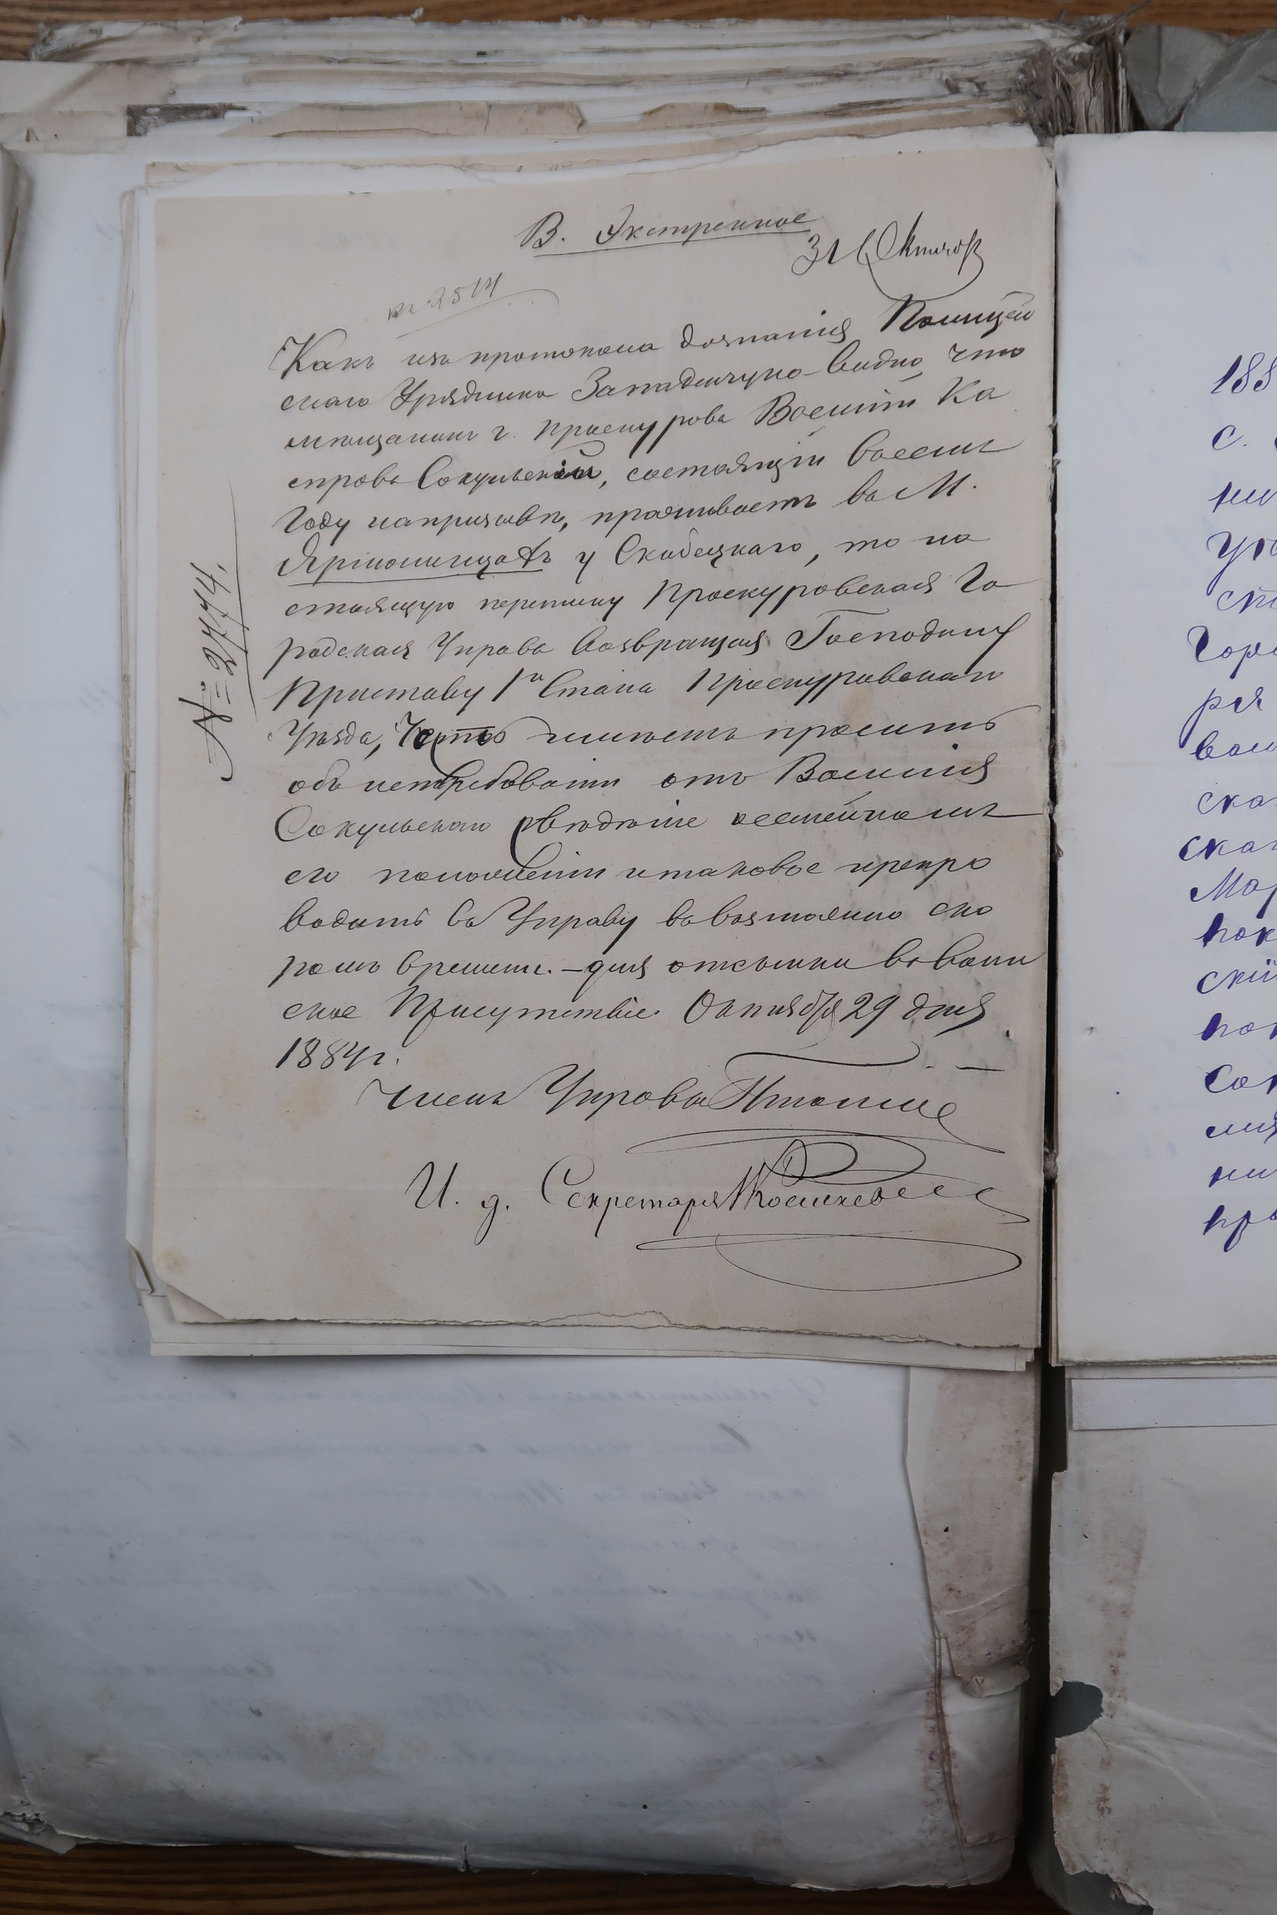 В. Экстренное
31 Октября
№ 2514
Какъ изъ протокола дознанія Полицей
скаго Урядника Западинчука видно, что
мещанинъ г. Проскурова Василій Ка
спровъ Сокульскій, состоящій въ семъ
году на призывѣ, проживаетъ въ М.
Ярмолинцахъ у Скибецкаго, то на
стоящую переписку Проскуровская Го
родская Управа возвращая Господину
Приставу 1го Стана Проскуровскаго
Уѣзда, честь имѣетъ просить
объ истребованіи отъ Василія
Сокульскаго свѣдѣніе о семейномъ
его положеніи и таковое препро
водить въ Управу въ возможно ско
ромъ времени. – для отсылки въ воин
ское Присутствіе. Октября 29 дня
1884 г.
Членъ Управы
И. д. Секретаря
№ 2774.
188
с.
ни
уѣ
ст
Горо
ря
вол
ска
скаг
Мар
пок
скій
пок
Сок
ни
пр